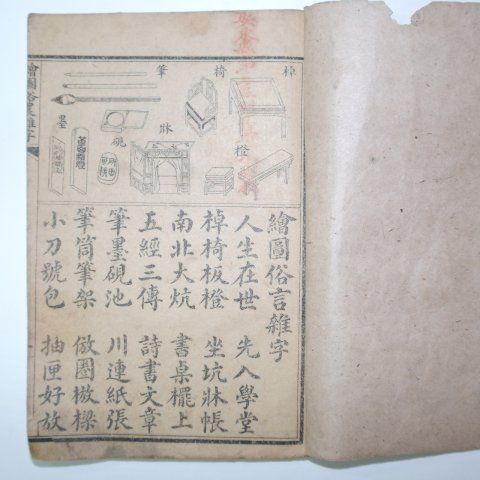 棹
椅
筆
橙
牀
硯
墨
繪圖俗言雜字
人生在世 先入學堂
棹椅板橙 坐炕牀帳
南北大炕 書桌擺上
五經三傳 詩書文章
筆墨硯池 川連紙張
筆筒筆架 倣圈
小刀號包 抽匣好放